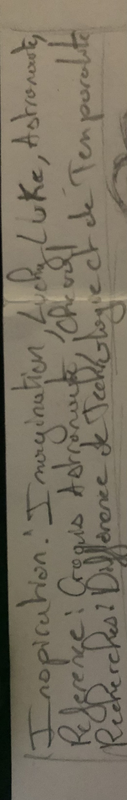 Inspiration: Imagination, Lucky Luke, Astronaute,
Reference: Croquis Astronaute / cheval
Recherches: Différence de Technologie et de Temporalité